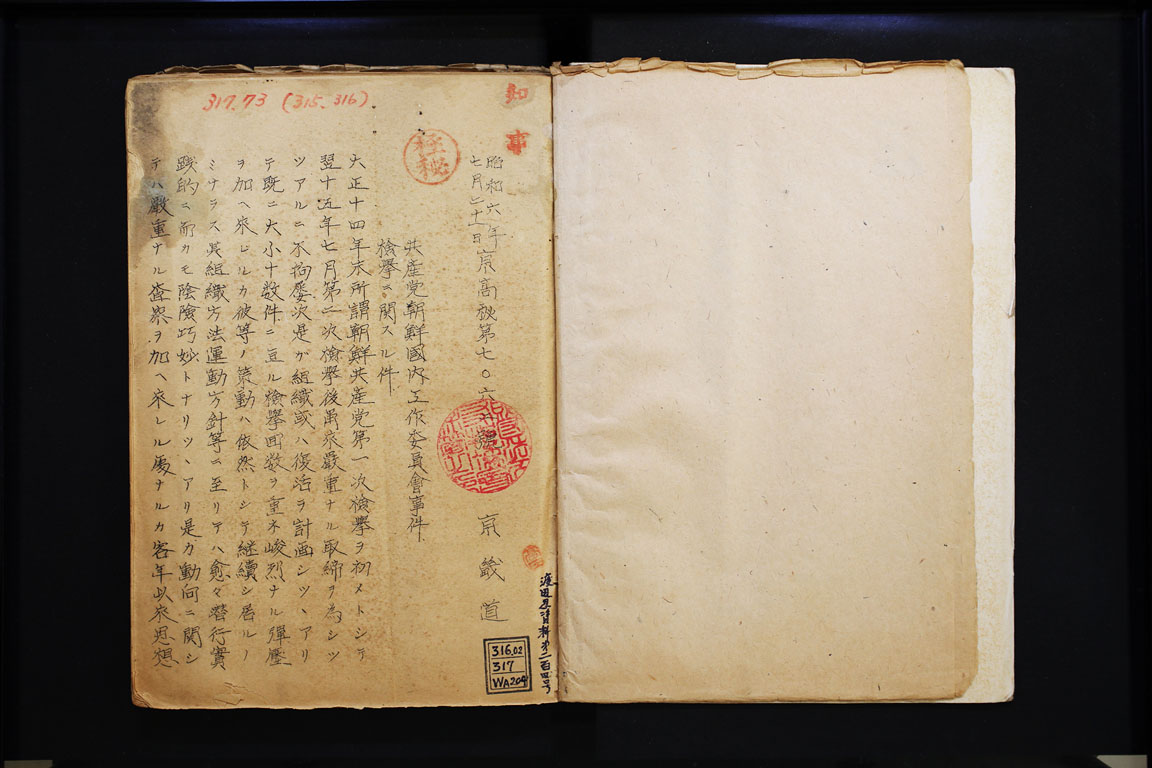 317.73 (315.316)
知事
極秘
昭和六年
七月二十一日
京高秘第七〇六六號
京畿道
共産党朝鮮國内工作委員會事件
檢擧ニ関スル件
大正十四年末所謂朝鮮共産党第一次檢擧ヲ初メトシテ
翌十五年七月第二次檢擧後再来嚴重ナル取締ヲ為シツ
ツアルニ不拘屡次是ガ組織或ハ復活ヲ計画シツヽアリ
テ既ニ大小十数件ニ亘ル檢擧回数ヲ重ネ峻烈ナル彈壓
ヲ加ヘ来レルカ彼等ノ策動ハ依然トシテ継續シ居ルノ
ミナラス其組織方法運動方針等ニ至リテハ愈々着行實
践的ニ而カモ陰險巧妙トナリツヽアリ是カ動向ニ関シ
テハ嚴重ナル査察ヲ加ヘ来レル處ナルカ客年以来思想
渡辺忍資料第二百四号
316.02
317
WA204